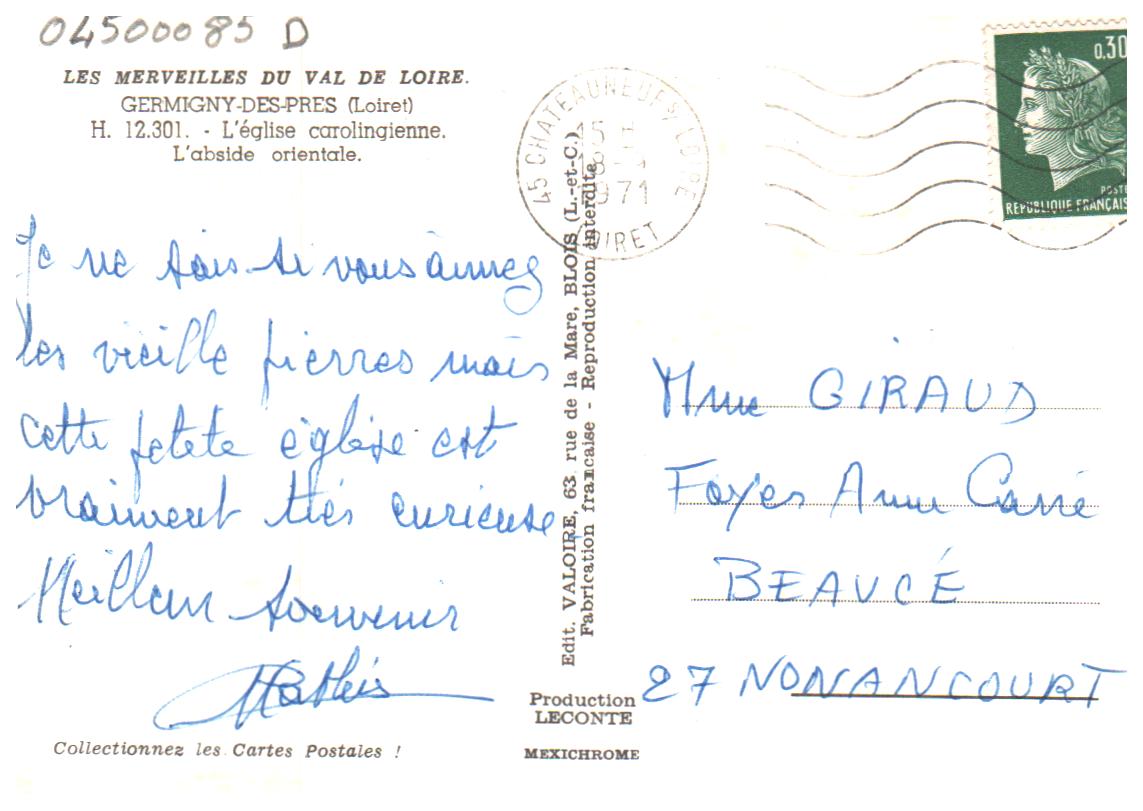 04500085 D
LES MERVEILLES DU VAL DE LOIRE.
GERMIGNY-DES-PRES (Loiret)
H. 12.301. - L'église carolingienne.
L'abside orientale.
45 CHATEAUNEUF S/ LOIRE
15 H
18 - 4
1971
LOIRET
0,30
POSTES
REPUBLIQUE FRANÇAISE
Je ne sais si vous aimez
les vieille pierres mais
cette petete église est
vraiment très curieuse
Meilleur souvenir
Edit. VALOIRE, 63, rue de la Mare, BLOIS (L.-et-C.)
Fabrication francaise - Reproduction interdite
Mme GIRAUD
Foyer Anne Carré
BEAUCÉ
27 NONANCOURT
Production
LECONTE
MEXICHROME
Collectionnez les Cartes Postales !